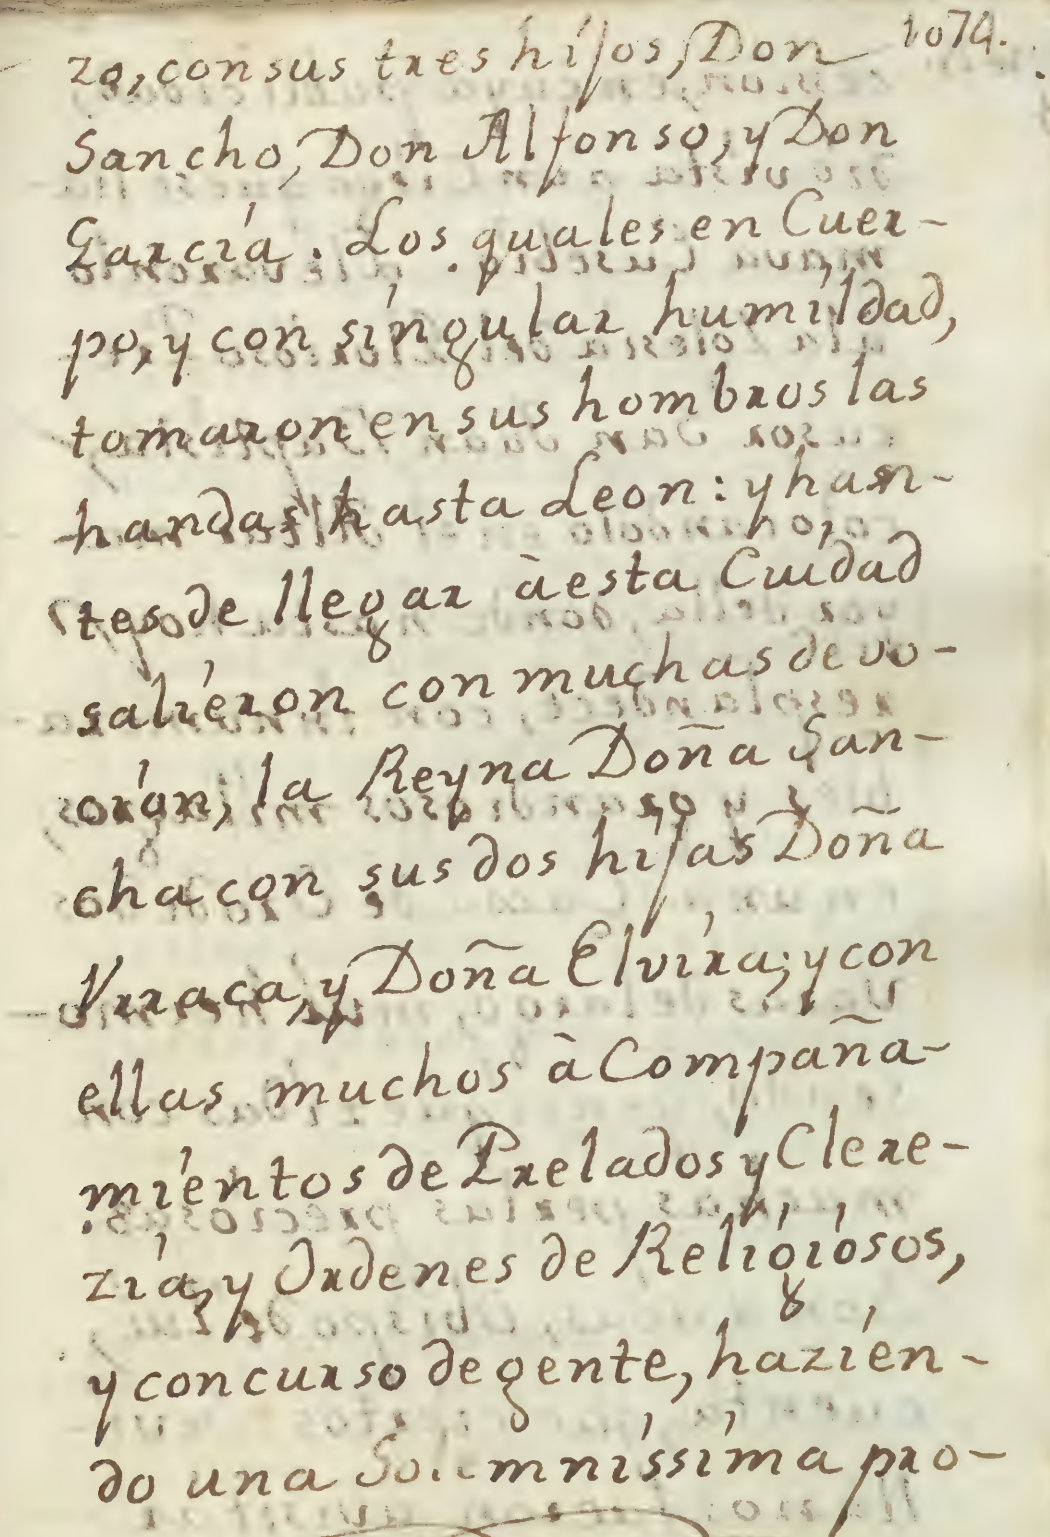 1074.
zo, con sus tres hijos, Don
Sancho, Don Alfonso, y Don
García. Los quales en Cuer-
po, y con síngular humíldad,
tomaron en sus hombros las
handas hasta Leon: y han-
tes de llegar à esta Cuídad
salíeron con muchas devo-
orán, la Reyna Doña San-
cha con sus dos hijas Doña
Vrraca, y Doña Elvíra; y con
ellas muchos à Compaña-
míentos de Prelados y Clere-
zía, y Ordenes de Relígíosos,
y concurso de gente, hazíen-
do una Solemníssíma pro-